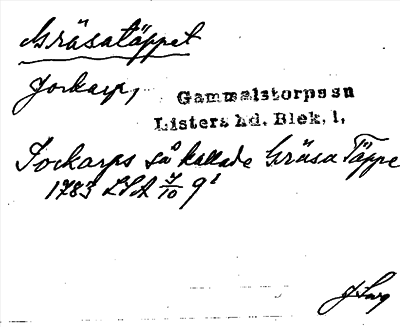 Gräsatäppet
Jorkarp,
Gammalstorps sn
Listers hd. Blek. l.
Jorkarps så kallade Gräsa Täppe
1783 LSA 7/10 9¹